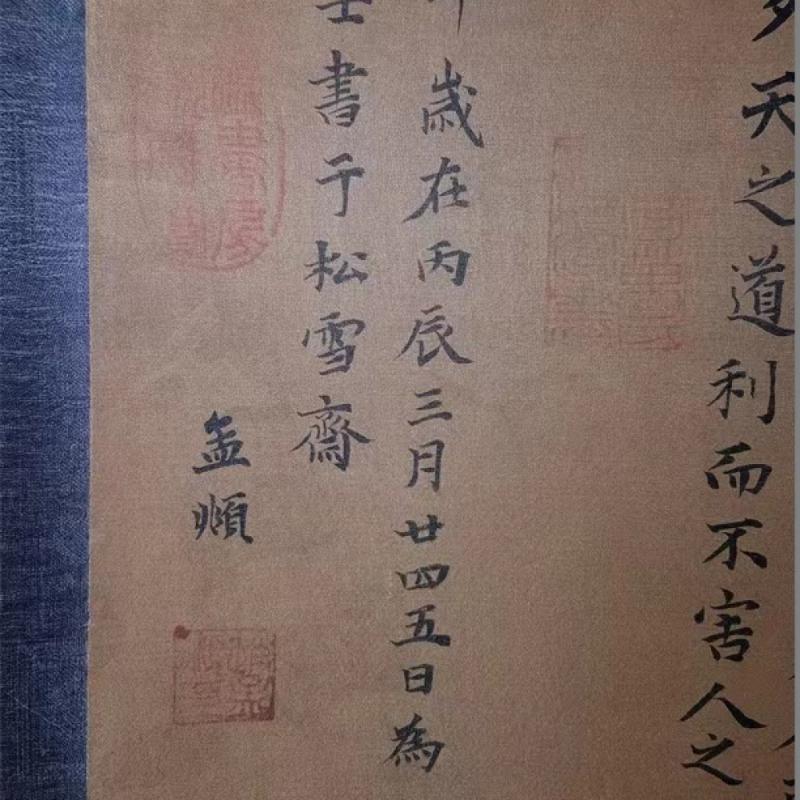 天之道利而不害人之
歲在丙辰三月廿四五日為
士書于松雪齋
孟頫